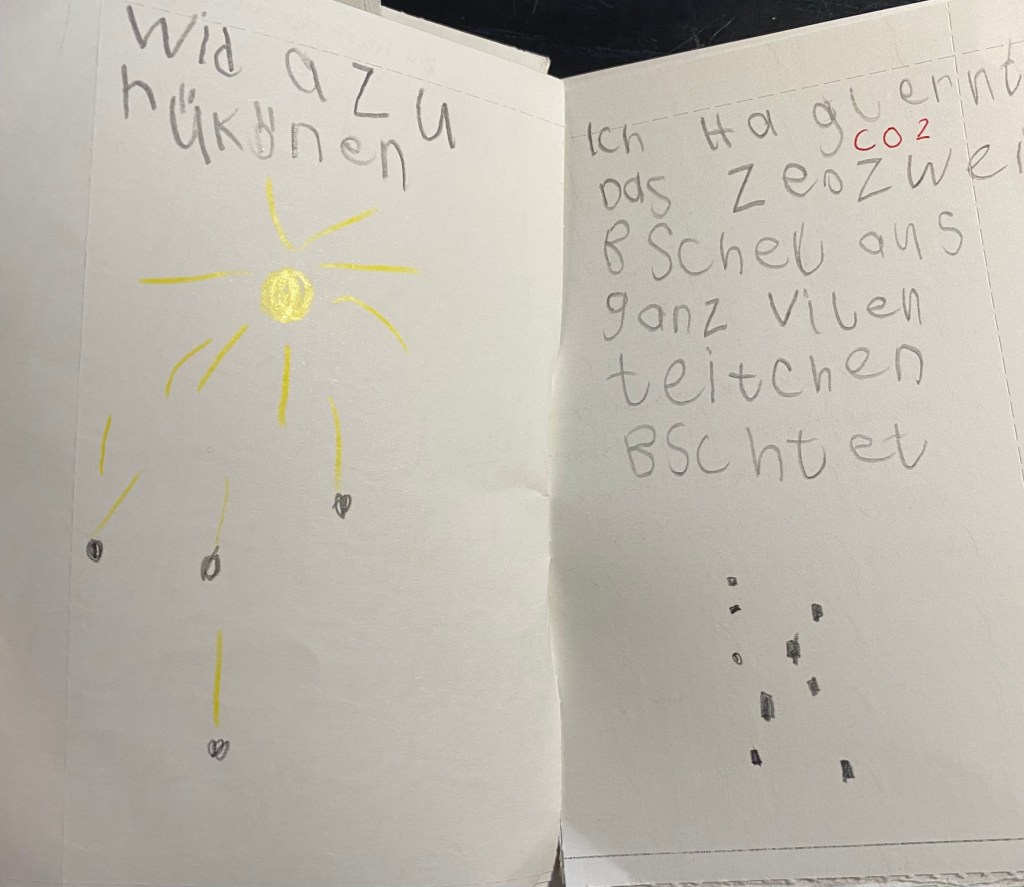 Wid a zu
rükönen
Ich Ha glernt
CO2
Das Zeozwei
BSchel aus
ganz vilen
teilchen
BSchtet